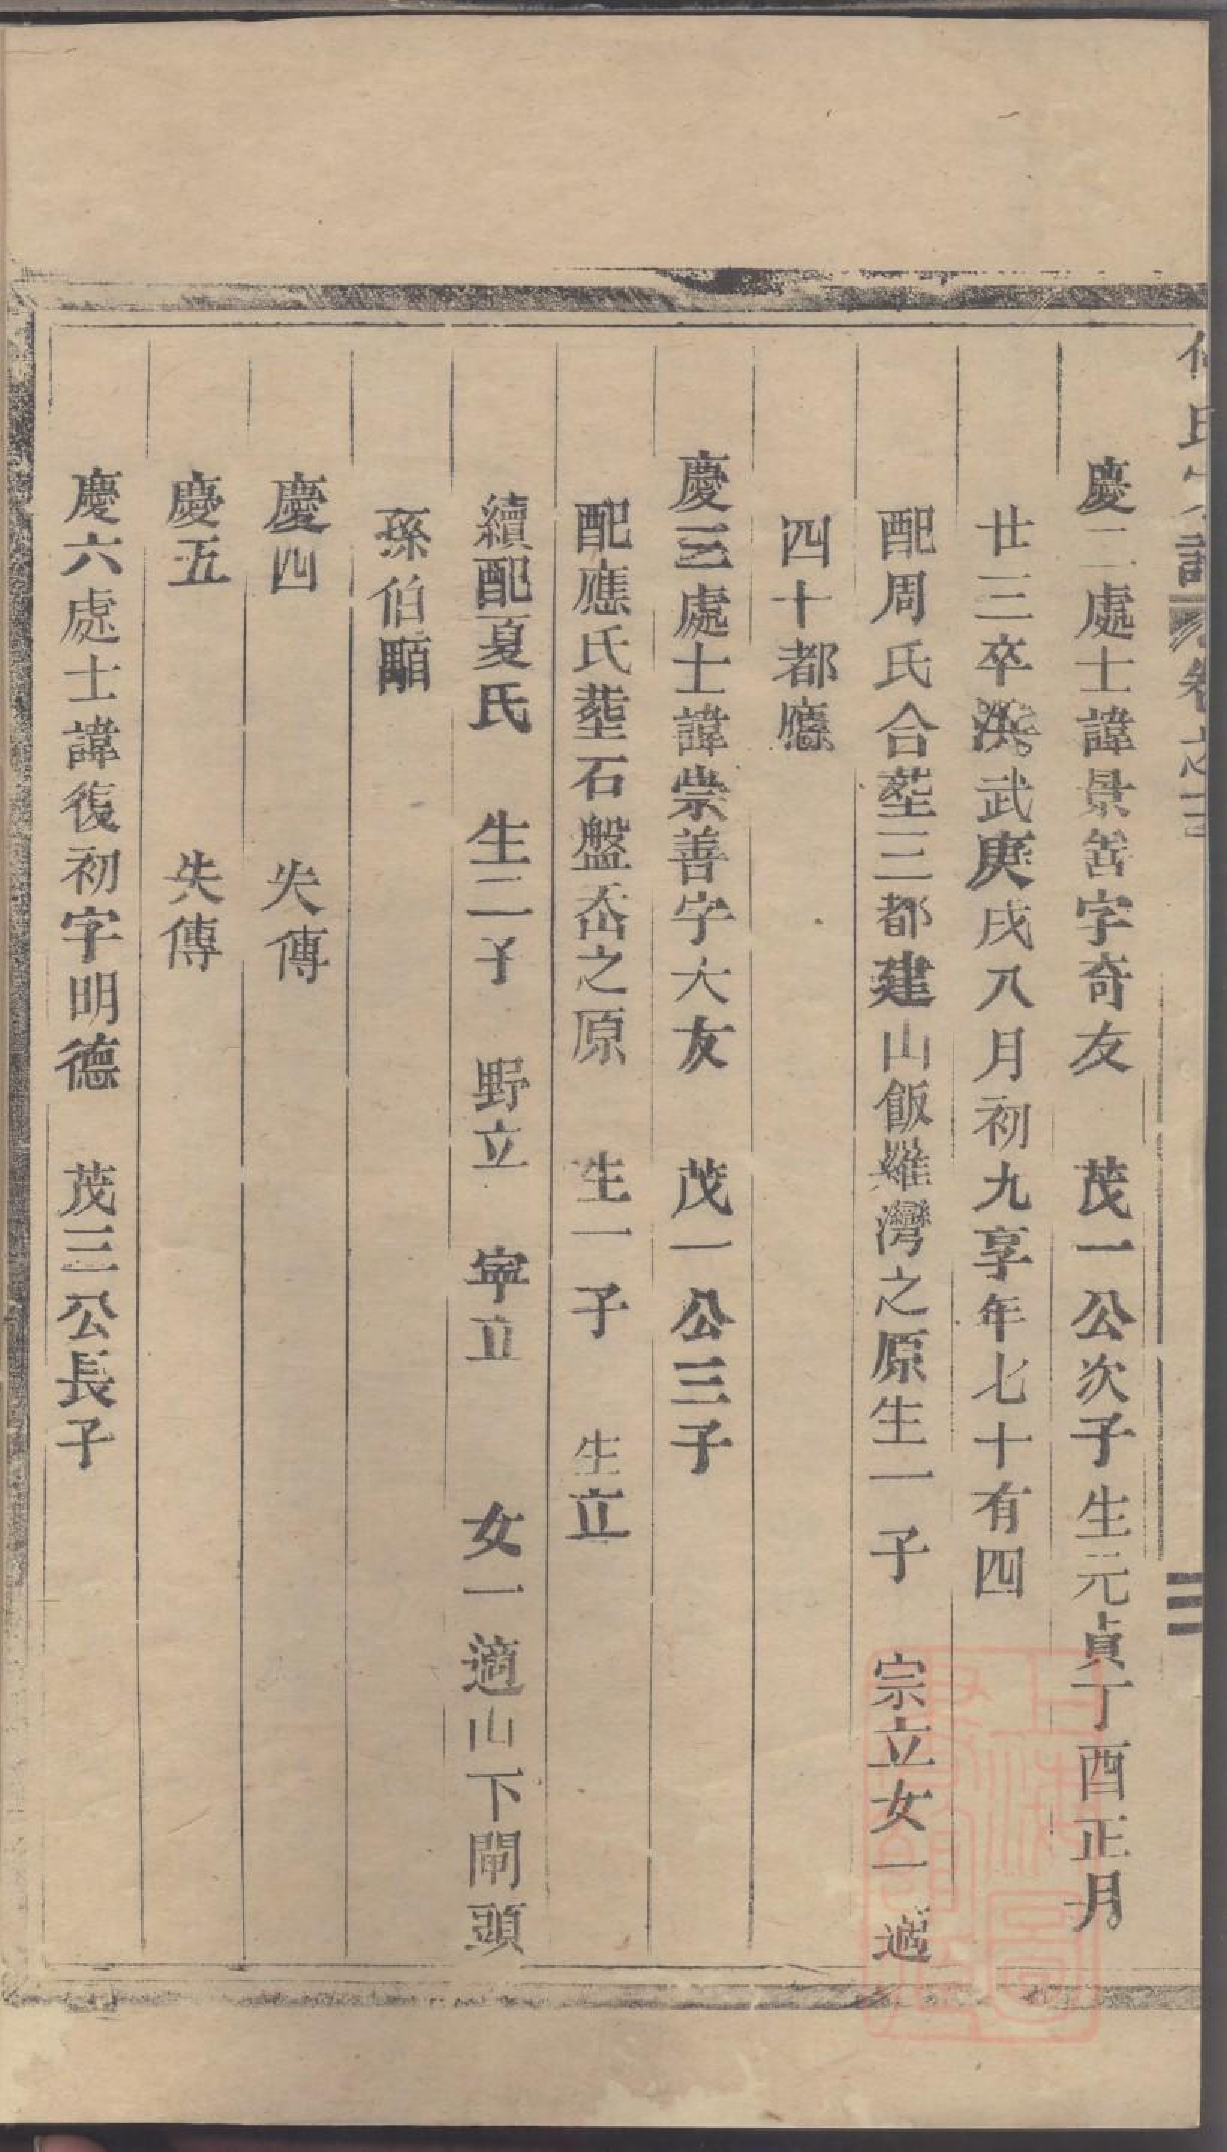 氏 譜 卷之三
慶二處士諱景善字奇友 茂一公次子生元貞丁酉正月
廿三卒洪武庚戌八月初九享年七十有四
配周氏合塟三都建山飯羅灣之原生一子 宗立女一適
四十都應
慶三處士諱崇善字大友 茂一公三子
配應氏塟石盤岙之原 生一子 生立
續配夏氏 生二子 野立 寜立 女一適山下閘頭
孫伯顒
慶四 失傳
慶五 失傳
慶六處士諱復初字明德 茂三公長子
三
上海圖書館藏